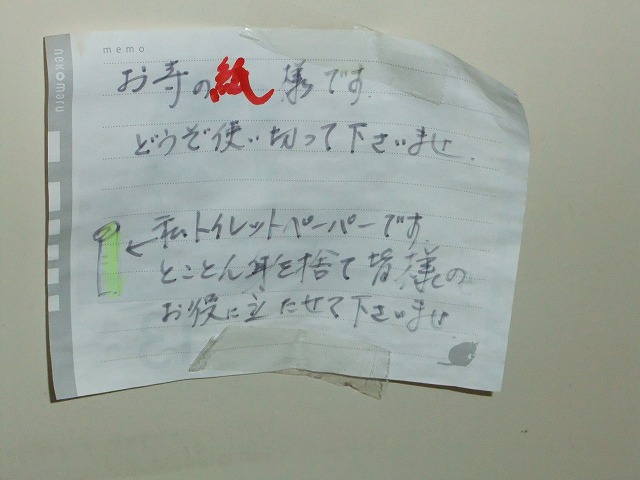 memo
nekomaru
お寺の紙様です
どうぞ使い切って下さいませ.
←私トイレットペーパーです
とことん身を捨て皆様の
お役に立たせて下さいませ